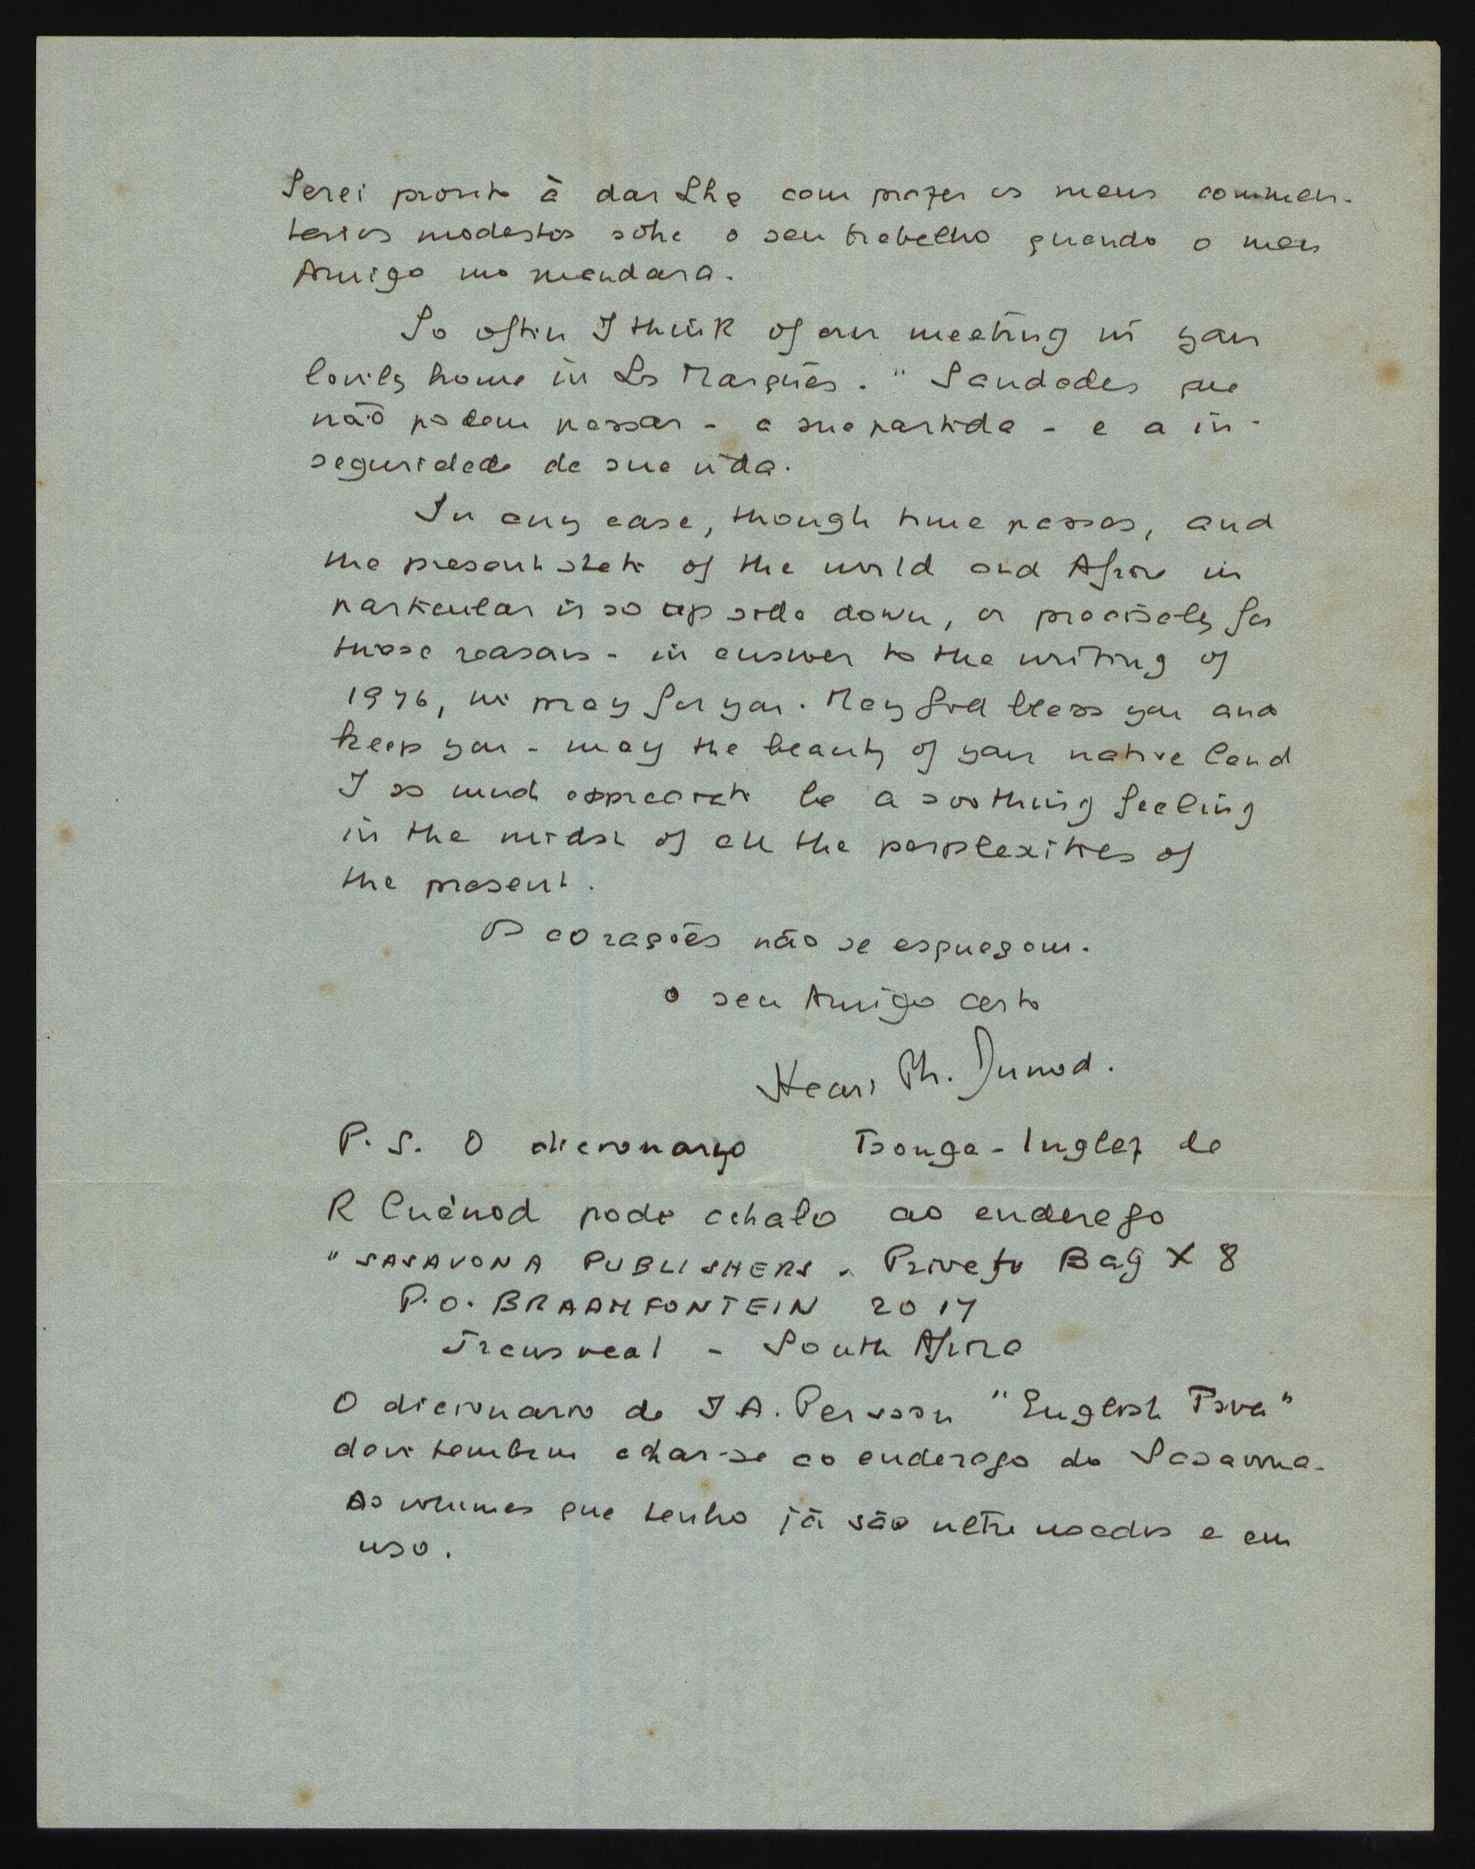 Serei pronto à dar Lhe com prazer os meus commen-
tarios modestos sobre o seu trabalho quando o meu
Amigo mo mandara.
So often I think of our meeting in your
lovely home in Ls Marquès. "Saudades que
não podem passar - a sua partida - e a in-
seguridade de sua vida.
In any case, though time passes, and
the present state of the world and Africa in
particular is so up side down, or precisely for
those reasons - in answer to the writing of
1976, we pray for you. May God bless you and
keep you - may the beauty of your native land
I so much appreciate be a soothing feeling
in the midst of all the perplexities of
the present.
Os corações não se esqueçem.
o seu Amigo certo
Henri Ph. Junod.
P. S. O dicionario Tsonga - Inglez de
R Cuénod pode achalo ao endereço
"SASAVONA PUBLISHERS. Private Bag X 8
P.O. BRAAMFONTEIN 2017
Transvaal - South Africa
O dicionario de J A. Persson "English Tswa"
deve tambem achar-se ao endereço de Sasavona.
Os volumes que tenho já são ultra usados e em
uso.